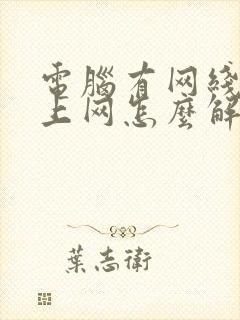 電腦有网綫
上网怎麽解
葉志衛